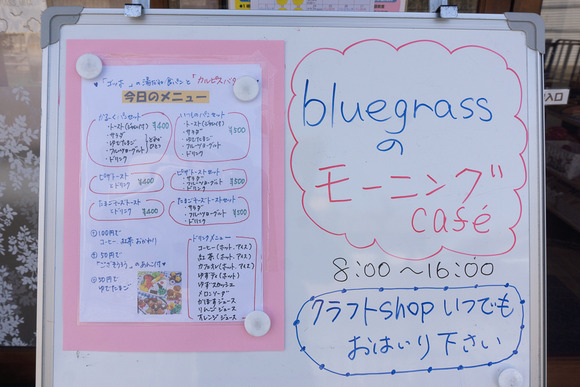 今日のメニュー
・トースト(ジャム付)
・サラダ
・ゆでたまご
・フルーツヨーグルト
・ドリンク
¥400
いつものパンセット
・トースト(ジャム付)
・サラダ
・ゆでたまご
・フルーツヨーグルト
・ドリンク
¥500
ピザトースト
とドリンク ¥400
ピザトーストセット
・サラダ
・フルーツヨーグルト
・ドリンク
¥500
たまごトースト
とドリンク ¥400
たまごトーストセット
・サラダ
・フルーツヨーグルト
・ドリンク
¥500
① 100円で
コーヒー 紅茶 おかわり
② 50円で
のあんこ付
③ 50円で
ゆでたまご
ドリンクメニュー
コーヒー(ホット、アイス)
紅茶(ホット、アイス)
カフェオレ(ホット、アイス)
ゆずティ(ホット)
ゆずスカッシュ
メロンソーダ
かぼすジュース
りんごジュース
オレンジジュース
bluegrass
の
モーニング
café
8:00〜16:00
クラフトshop いつでも
おはいり下さい
入口